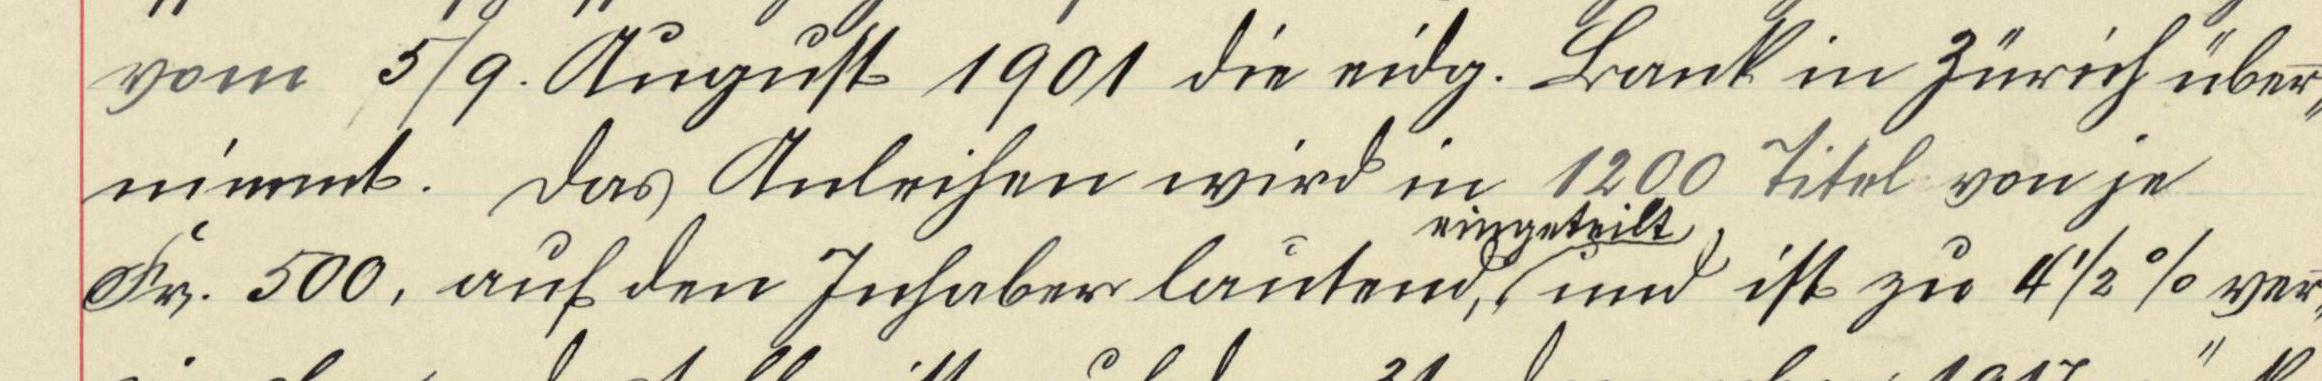 vom 5/9. August 1901 die eidg. Bank in Zürich über-
nimmt. Das Anleihen wird in 1200 Titel von je
eingeteilt,
Fr. 500, auf den Inhaber lautend, und ist zu 4 1/2 % ver-